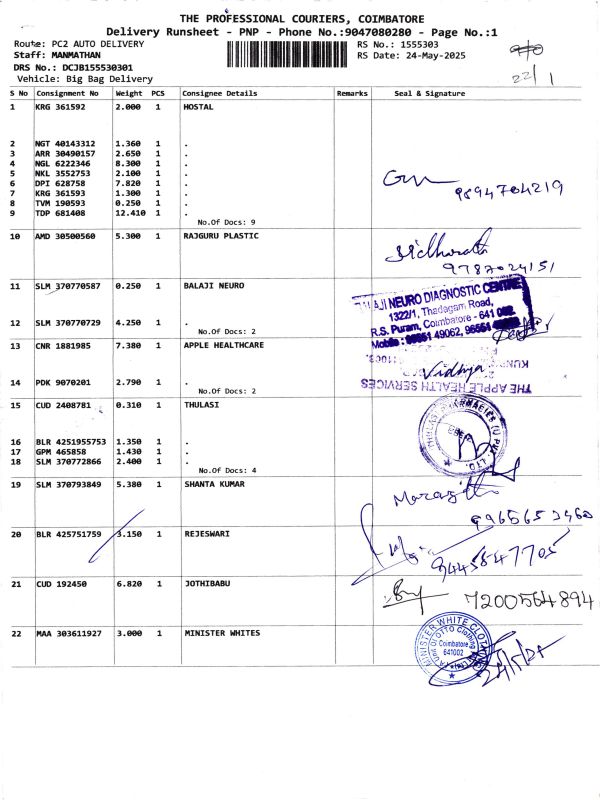 THE PROFESSIONAL COURIERS, COIMBATORE
Delivery Runsheet - PNP - Phone No.:9047080280 - Page No.:1
Route: PC2 AUTO DELIVERY RS No.: 1555303
Staff: MANMATHAN RS Date: 24-May-2025
DRS No.: DCJB155530301
Vehicle: Big Bag Delivery 22/1
S No Consignment No Weight PCS Consignee Details Remarks Seal & Signature
1 KRG 361592 2.000 1 HOSTAL
2 NGT 40143312 1.360 1 .
3 ARR 30490157 2.650 1 .
4 NGL 6222346 8.300 1 .
5 NKL 3552753 2.100 1 .
6 DPI 628758 7.820 1 .
7 KRG 361593 1.300 1 .
8 TVM 190593 0.250 1 .
9 TDP 681408 12.410 1 .
9894704219
No.Of Docs: 9
10 AMD 30500560 5.300 1 RAJGURU PLASTIC
9787024151
11 SLM 370770587 0.250 1 BALAJI NEURO
BALAJI NEURO DIAGNOSTIC CENTRE
1322/1, Thadagam Road,
R.S. Puram, Coimbatore - 641 002
Mobile : 98651 49062, 96551
12 SLM 370770729 4.250 1 .
No.Of Docs: 2
13 CNR 1881985 7.380 1 APPLE HEALTHCARE
Vidhya
THE APPLE HEALTH SERVICES
14 PDK 9070201 2.790 1 .
No.Of Docs: 2
15 CUD 2408781 0.310 1 THULASI
THULASI PHARMACIES (I) PVT. LTD.
16 BLR 4251955753 1.350 1 .
17 GPM 465858 1.430 1 .
18 SLM 370772866 2.400 1 .
No.Of Docs: 4
19 SLM 370793849 5.380 1 SHANTA KUMAR
9965653460
20 BLR 425751759 3.150 1 REJESWARI
9445847705
21 CUD 192450 6.820 1 JOTHIBABU
7200564894
22 MAA 303611927 3.000 1 MINISTER WHITES
MINISTER WHITE CLOTHING
Coimbatore
641002
24/5/25